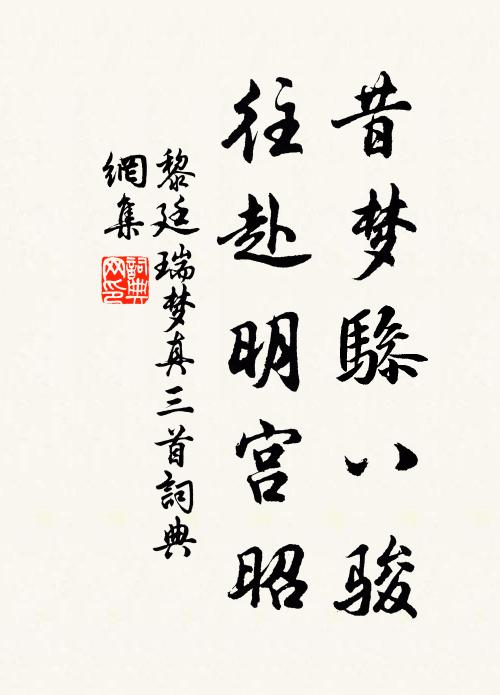 昔梦骖八骏
往赴明宫昭
黎廷瑞梦真三首詞典
網集
詞典
网印